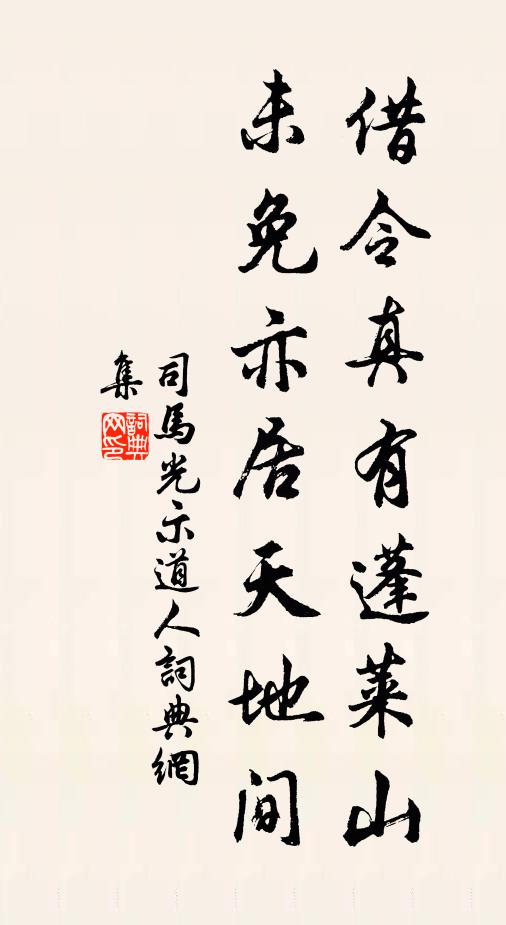 借令真有蓬莱山
未免亦居天地间
司馬光示道人詞典網
集
詞典
网印